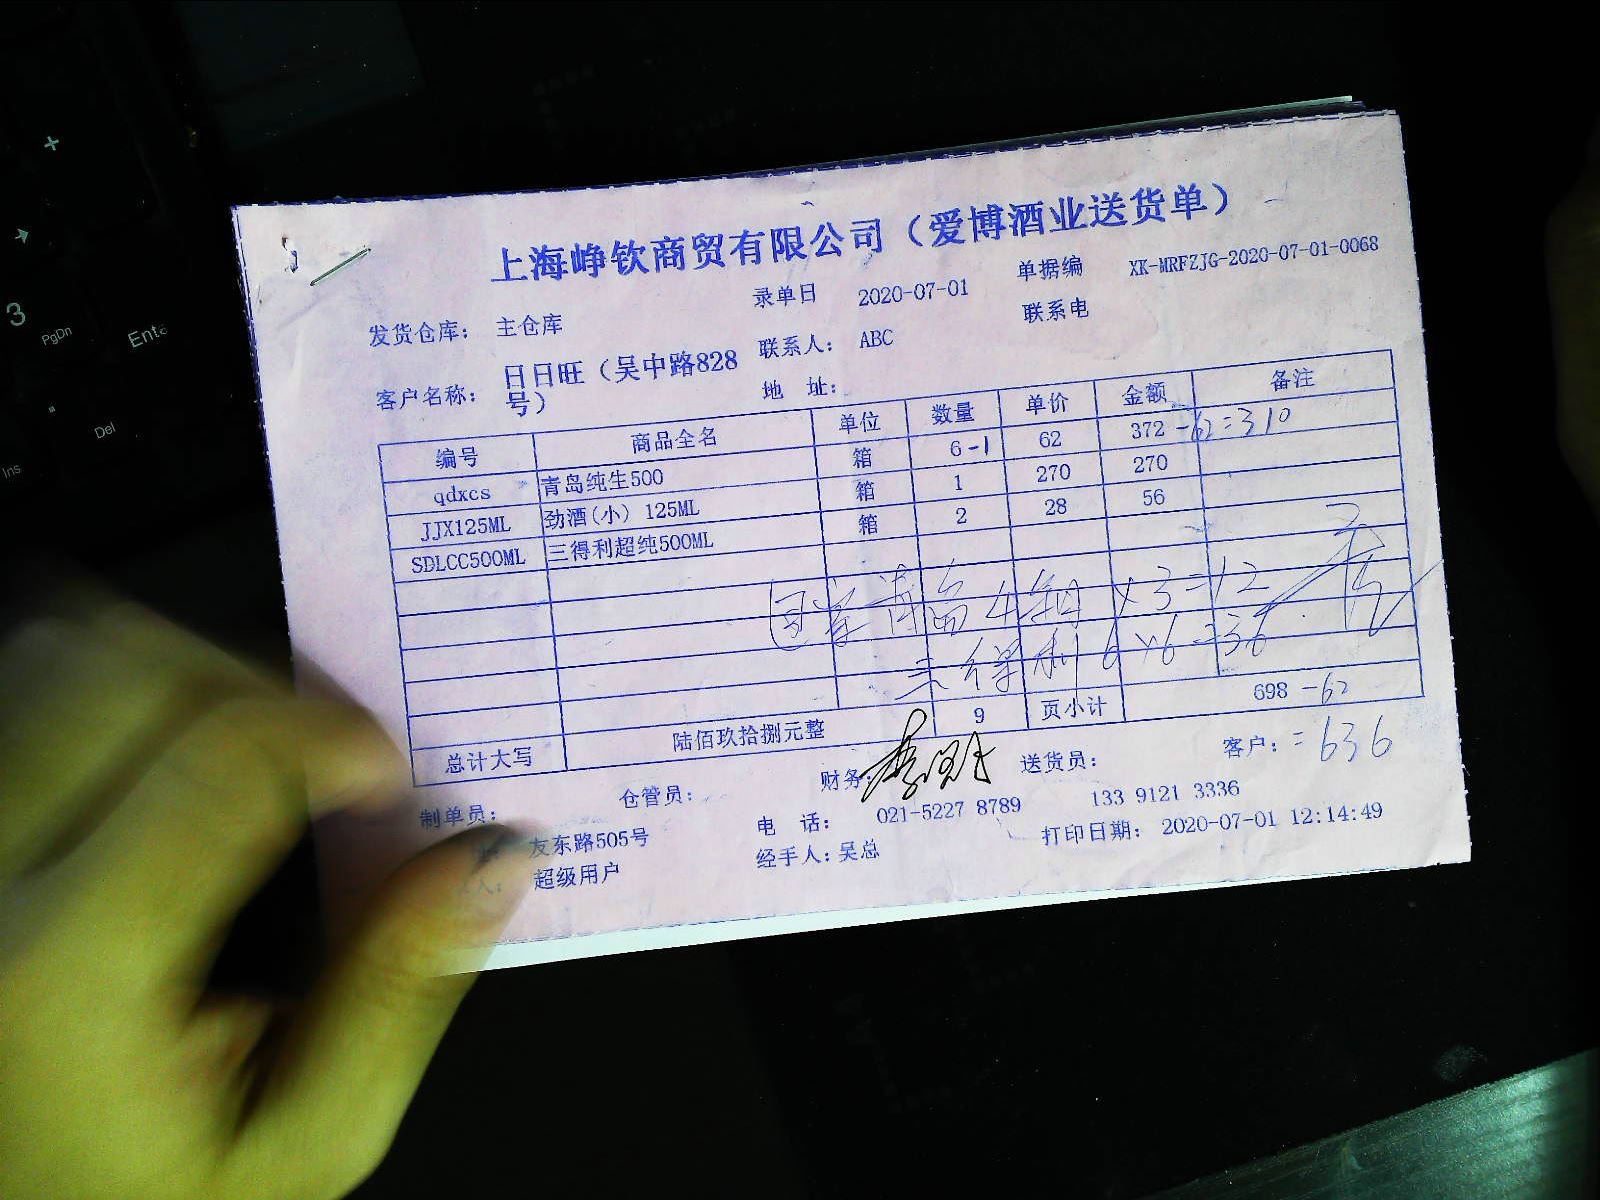 上海峥钦商贸有限公司（爱博酒业送货单）
录单日 2020-07-01 单据编 XK-MRFZJG-2020-07-01-0068
发货仓库： 主仓库 联系人： ABC 联系电
客户名称： 日日旺（吴中路828号） 地 址：
编号 商品全名 单位 数量 单价 金额 备注
qdxcs 青岛纯生500 箱 6-1 62 372 -62=310
JJX125ML 劲酒(小) 125ML 箱 1 270 270
SDLCC500ML 三得利超纯500ML 箱 2 28 56
青岛4箱 x3=12
三得利 6 x6=36
总计大写 陆佰玖拾捌元整 9 页小计 698 -62
=636
制单员： 仓管员： 财务： 送货员： 客户：
友东路505号 电 话： 021-5227 8789 133 9121 3336
超级用户 经手人：吴总 打印日期： 2020-07-01 12:14:49
+
3
PgDn
Ente
Del
Ins